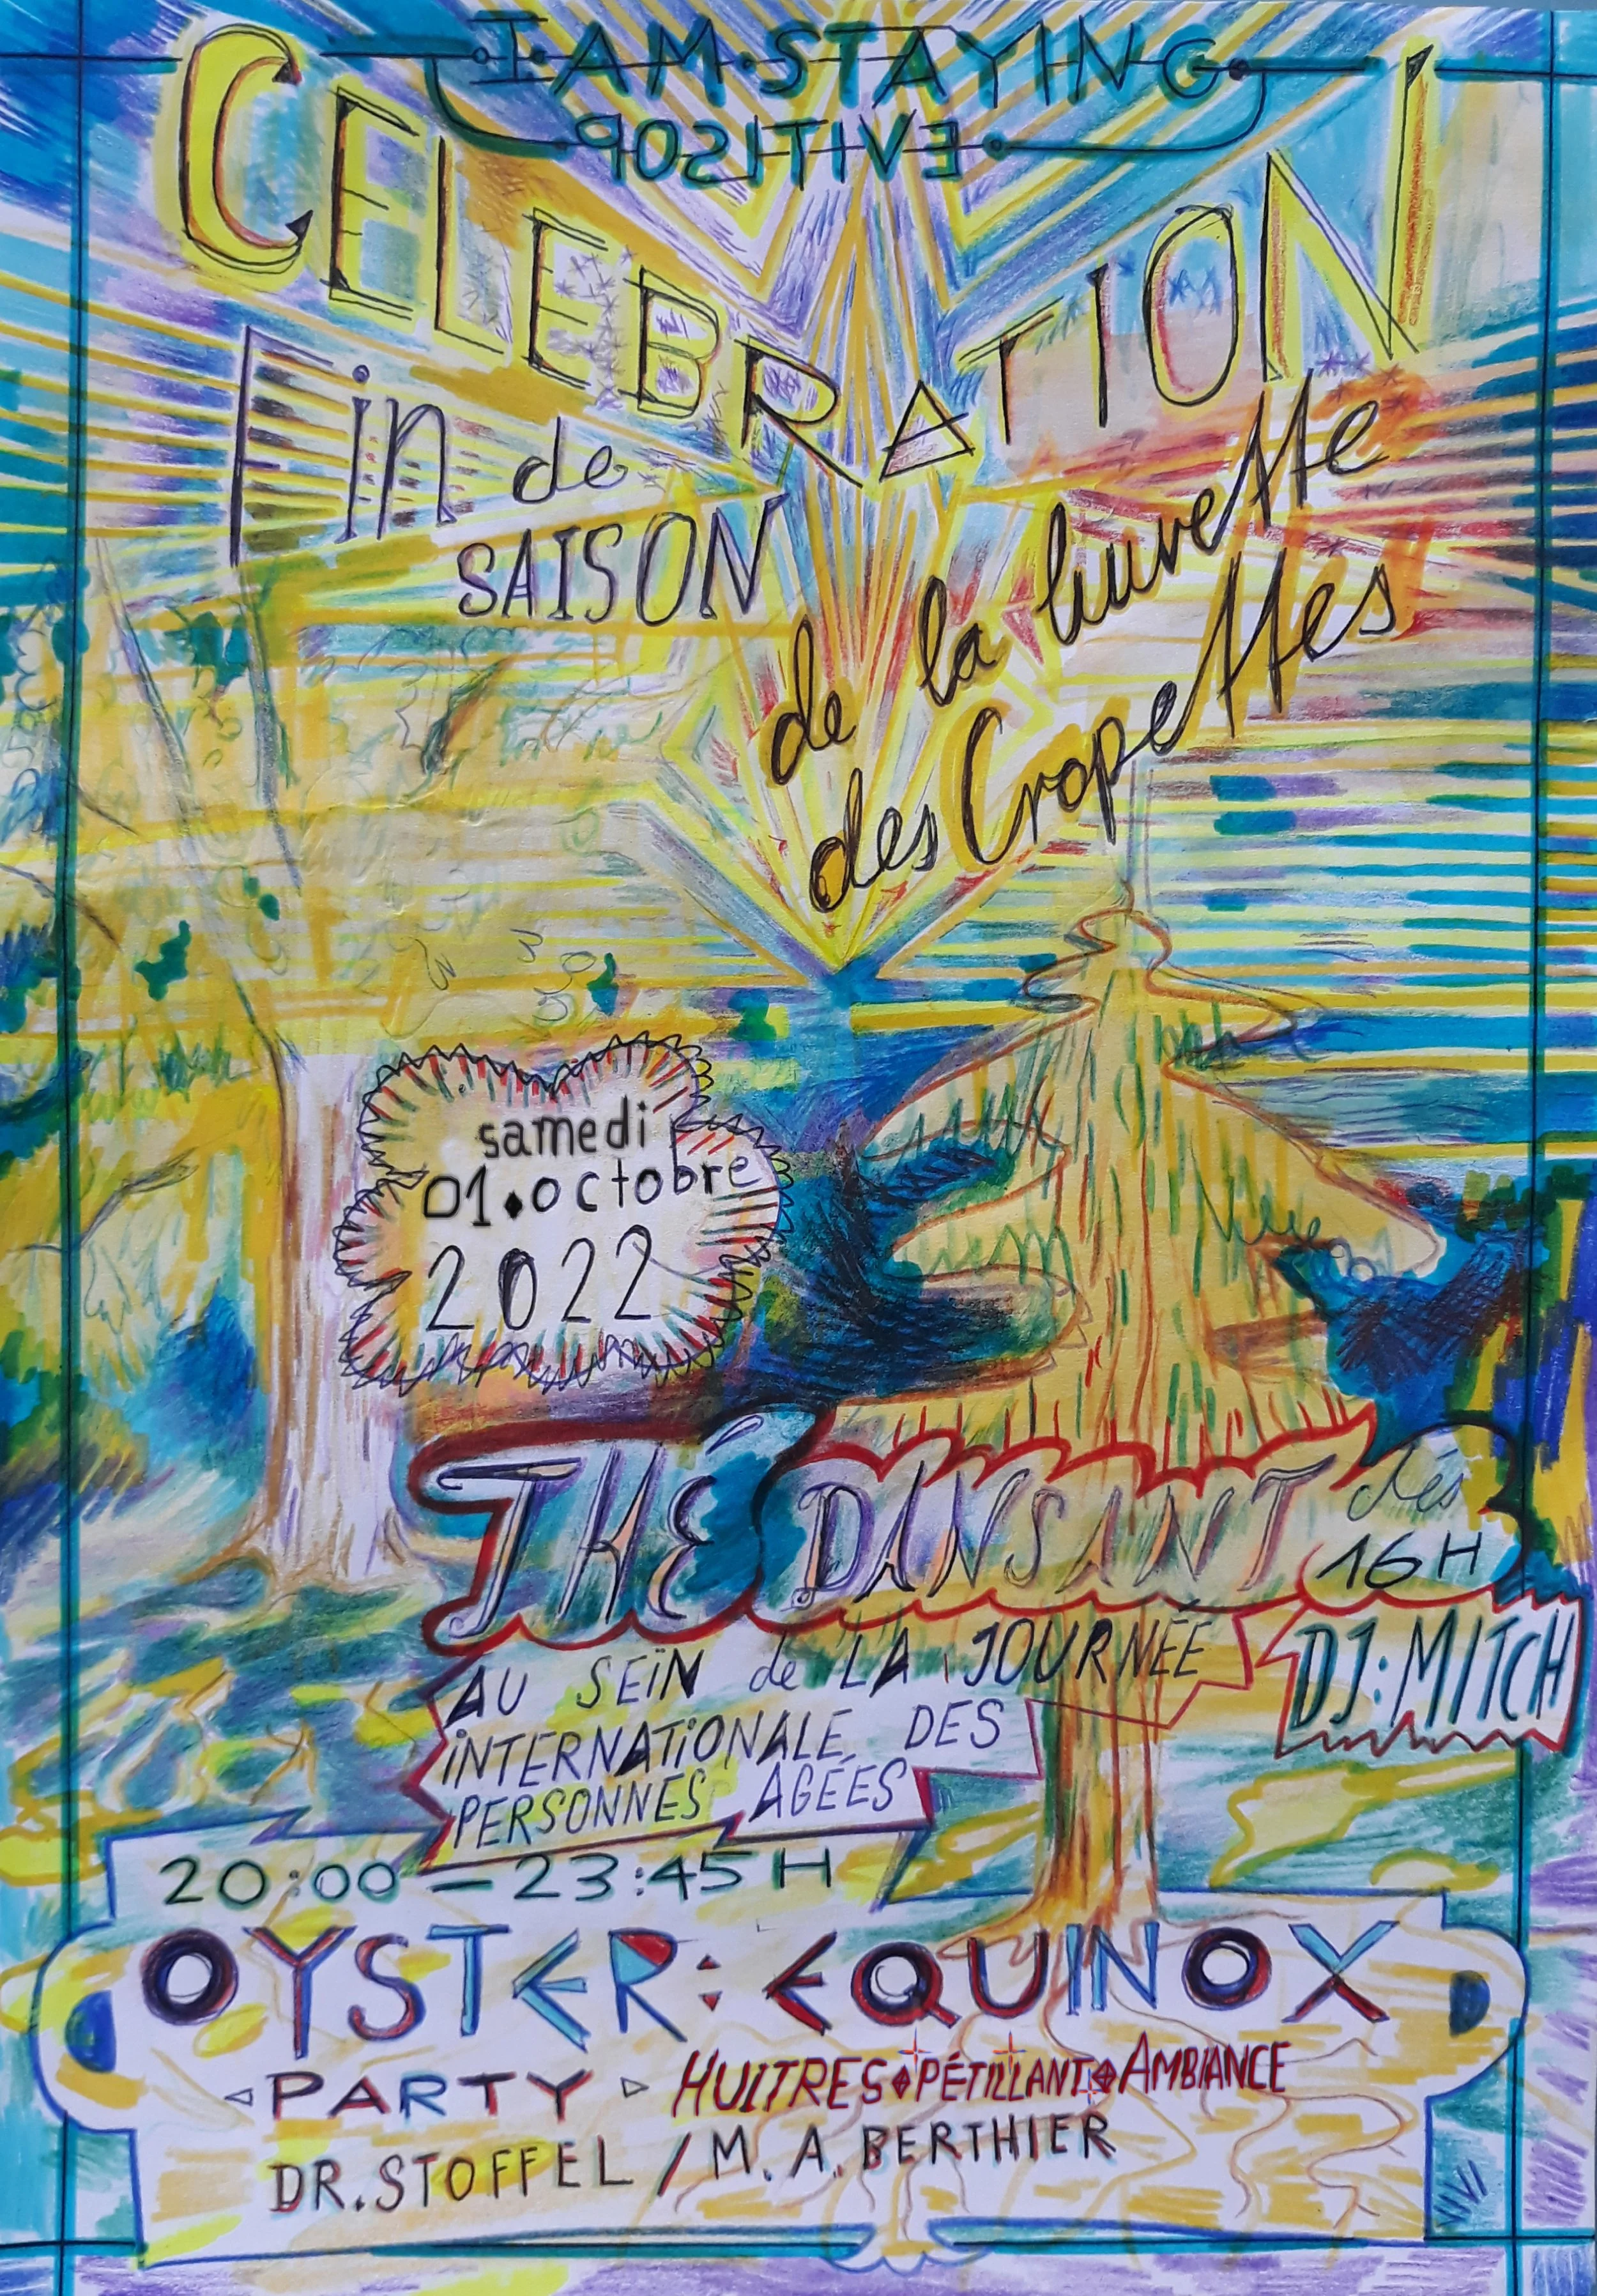 I·AM·STAYING
POSITIVE
CELEBRATION
Fin de
SAISON
de la buvette
des Cropettes
samedi
01.octobre
2022
THÉ DANSANT dès
16H
DJ:MITCH
AU SEÏN de LA JOURNÉE
INTERNATIONALE DES
PERSONNES AGÉES
20:00 — 23:45 H
OYSTER: EQUINOX
PARTY HUITRES PÉTILLANT AMBIANCE
DR. STOFFEL / M. A. BERTHIER
VIVI